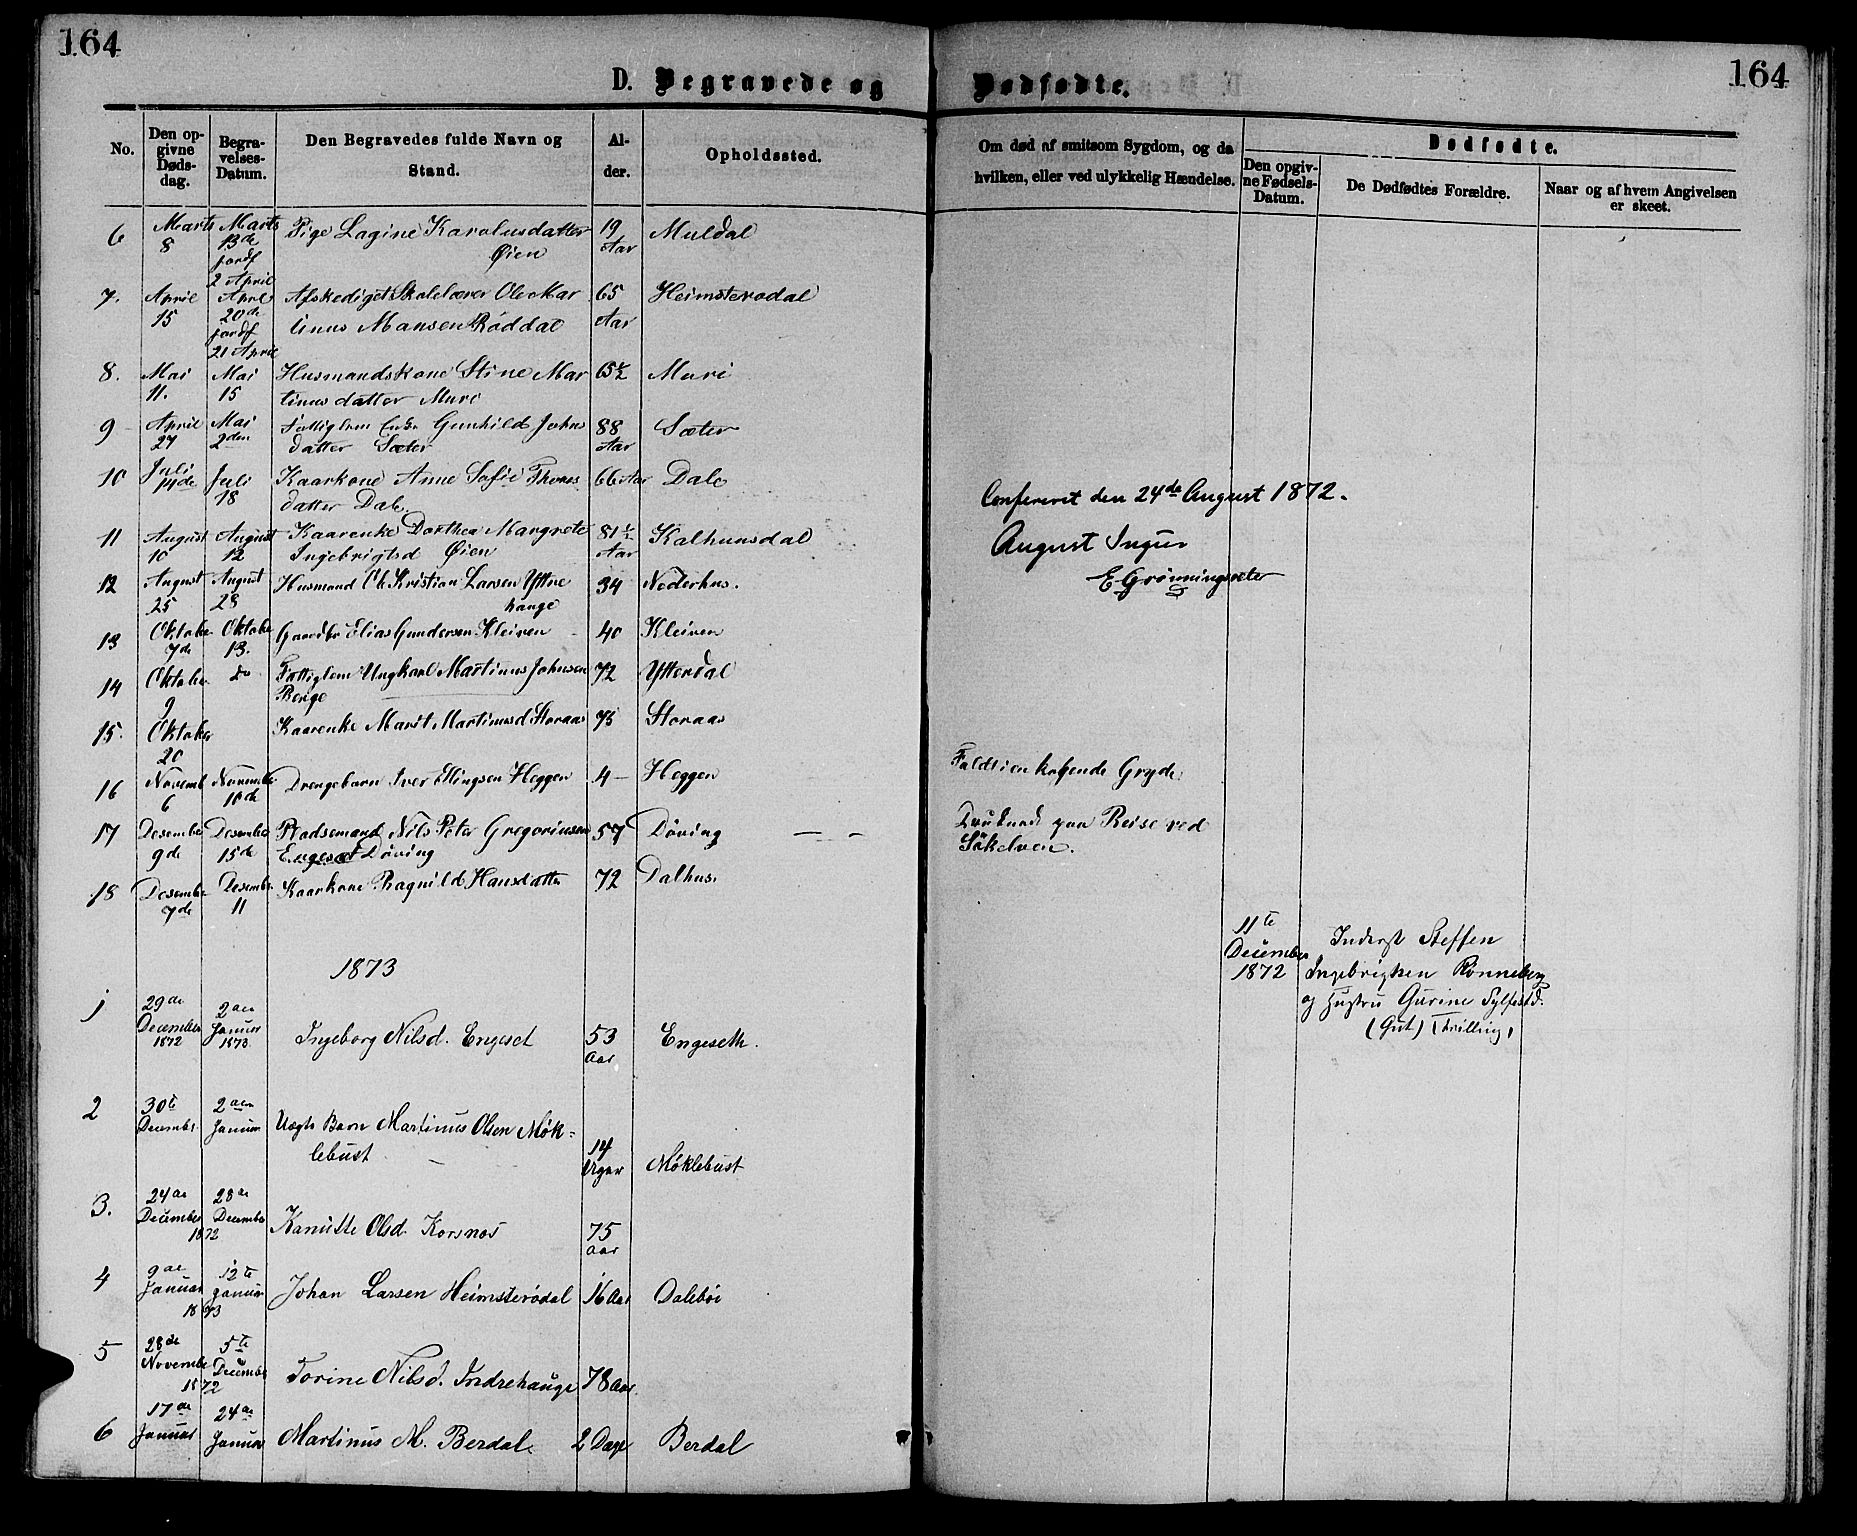 164
164
D. Begravede og Dødfødte.
No.
Den opgivne Dødsdag.
Begravelses-Datum.
Den Begravedes fulde Navn og Stand.
Alder.
Opholdssted.
Om død af smitsom Sygdom, og da hvilken, eller ved ulykkelig Hændelse.
Dødfødte.
Den opgivne Fødsels-Datum.
De Dødfødtes Forældre.
Naar og af hvem Angivelsen er skeet.
6 Marts 8 Marts 13de jordf 2 April Pige Lagine Karolusdatter Øien 19 Aar Muldal
7. April 15 April 20de jordf 21 April Afskediget Skolelærer Ole Martinus Mansen Røddal 65 Aar Heimsterødal
8. Mai 11. Mai 15 Husmandskone Stine Martinusdatter Muri 65½ Muri
9 April 27 Mai 2den Fattiglem Enke Gunhild Johnsdatter Sæter 88 Aar Sæter
10 Juli 14de Juli 18 Kaarkone Anne Sofie Thoresdatter Dale. 66 Aar Dale
Confereret den 24de August 1872.
11 August 10 August 12 Kaarenke Dorthea Margrete Ingebrigtsd Øien 81½ Aar Kalhunsdal
August
E Grønningsæter
12 August 25 August 28 Husmand Ole Kristian Larsen Yttrehauge 34 Nederhus.
13 Oktober 7de Oktober 13. Gaardbr Elias Gundersen Kleiven 40 Kleiven
14 Oktober 9 do Fattiglem Ungkarl Martinus Johnsen Berge 72 Ytterdal
15. Oktober 20 Kaarenke Marit Martinusd Storaas 75 Storaas
16 Novemb 6 November 10de Drengebarn Iver Ellingsen Heggen 4 – Heggen Faldt i en kogende Gryde
17 Desember 9de Desember 15de Pladsemand Nils Peter Gregoriusen Engeset Døving 57 Døving — — Druknede paa Reise ved Søkelven.
18 Desember 7de Desember 11 Kaarkone Ragnild Hansdatter 72 Dalhus.
11te December 1872 Inderst Steffen Ingebrigtsen Rønneberg og Hustru Gurine Sylfestd. (Gut) Tvilling,
1873
1 29de December 1872 2den Januar 1873. Ingeborg Nilsd. Engeset 53 Aar Engeseth.
2 30te December. 2den Januar Uægte Barn Martinus Olsen Møklebust 14 Uger Møklebust
3. 24de December 28de December 1872 Kanutte Olsd. Korsnes 75 Aar
4 9de Januar 12te Januar 1873 Johan Larsen Heimsterødal 16 Aar Dalebøe
5 28de November 5te December 1872 Torine Nilsd. Indrehauge 78 Aar.
6 17de Januar 24de Januar Martinus M. Berdal. 2 Dage Berdal